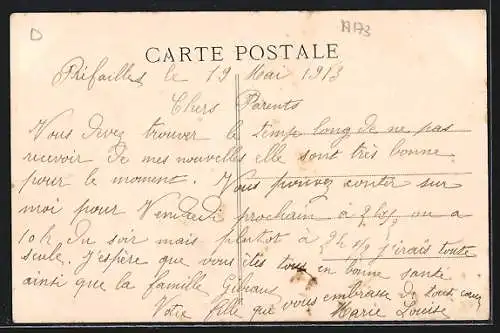 D
CARTE POSTALE
Préfailles le 19 Mai 1913
Chers Parents
Vous devez trouver le temps long de ne pas
recevoir de mes nouvelles elle sont très bonne
pour le moment. Vous pouvez conter sur
moi pour Vendredi prochain à ou a
10 h du soir mais plutôt à j'irais toute
seule. J'espère que vous êtes tous en bonne santé
ainsi que la famille
Votre fille que vous embrasse de tout cœur
Marie Louise